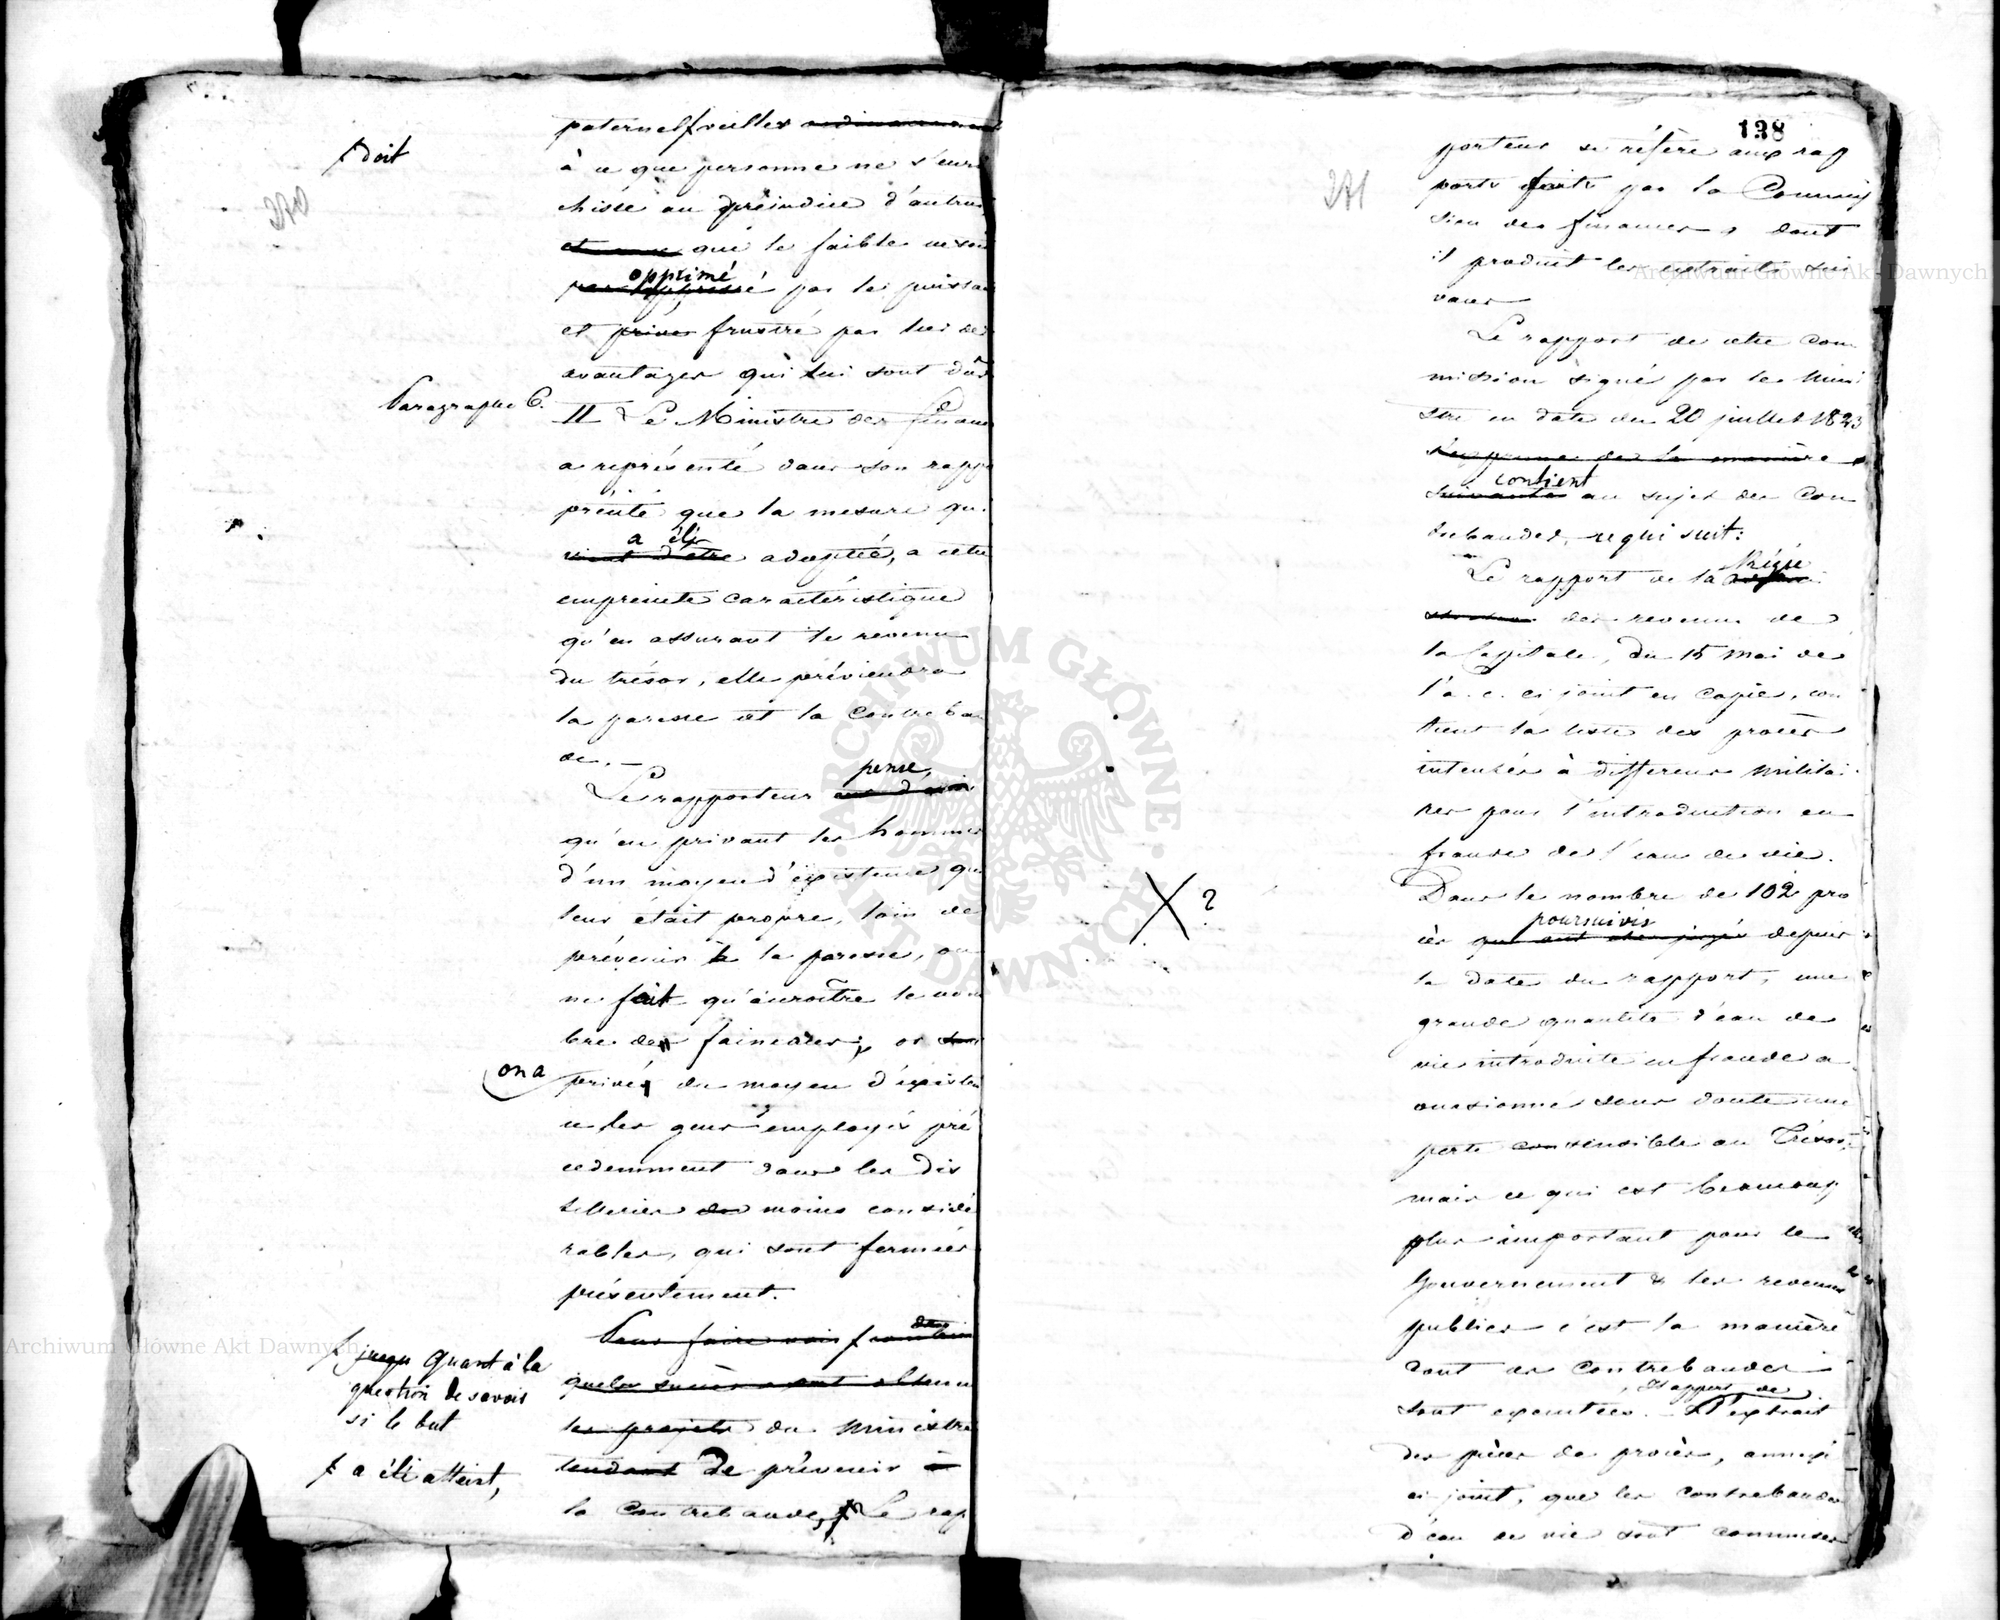 ƒ doit
270
paternelf veiller ordinairement
à ce que personne ne s'enri
chisse au préjudice d'autrui
et que le faible ne soit
opprimé
par les puissa
et privé frustré par lui des
avantages qui lui sont dûs
Paragraphe 6.
II Le Ministre des finances
a représenté dans son rapp
précité que la mesure qui
a été
vient d'être adoptée, a cette
empreinte caractéristique
qu'en assurant le revenu
du trésor, elle préviendra
la paresse et la contreban
de. —
pense,
Le rapporteur est d'avis
qu'en privant les hommes
d'un moyen d'existence qui
leur était propre, loin de
prévenir à la paresse, on
ne fait qu'accroître le nom
bre des fainéans, or sont
(on a
privé du moyen d'existen
ce les gens employés pré
cedemment dans les dis
telleries de moins considé
rables, qui sont fermées
présentement.
Pour faire voir
ƒ jusqu Quant à la
question de savoir
si le but
quels succès ont obtenu
les projets du Ministre
ƒ a été atteint,
tendant De prévenir à
la Contrebande, ƒ Le rap
138
271
porteur se réfère aux rap
ports faits par la Commis
sion des finances, dont
il produit les extraits sui
vans
Le rapport de cette com
mission signé par le Mini
stre en date du 20 juillet 1823
s'exprime de la manière
contient
suivante au sujet des Con
trebandes, ce qui suit:
Régie
Le rapport de la
des revenus de
la Capitale, du 15 Mai de
l'a. c. ci joint en copie, con
tient la liste des procès
intentés à differens militai
res pour l'introduction en
fraude de l'eau de vie.
X ?
Dans le nombre de 102 pro
poursuivis
cès qui ont été jugés depuis
la date du rapport, une
grande quantité d'eau de
vie introduite en fraude a
occasionné sans doute une
perte con sensible au Trésor,
mais ce qui est beaucoup
plus important pour le
Gouvernement & les revenus
publics c'est la manière
dont ces Contrebandes
, Il appert de
sont exécutées. — L'extrait
des pièces de procès, annexé
ci joint, que les contrebandes
d'eau de vie sont commises
Archiwum Główne Akt Dawnych
Archiwum Główne Akt Dawnych
ARCHIWUM GŁÓWNE · AKT DAWNYCH ·